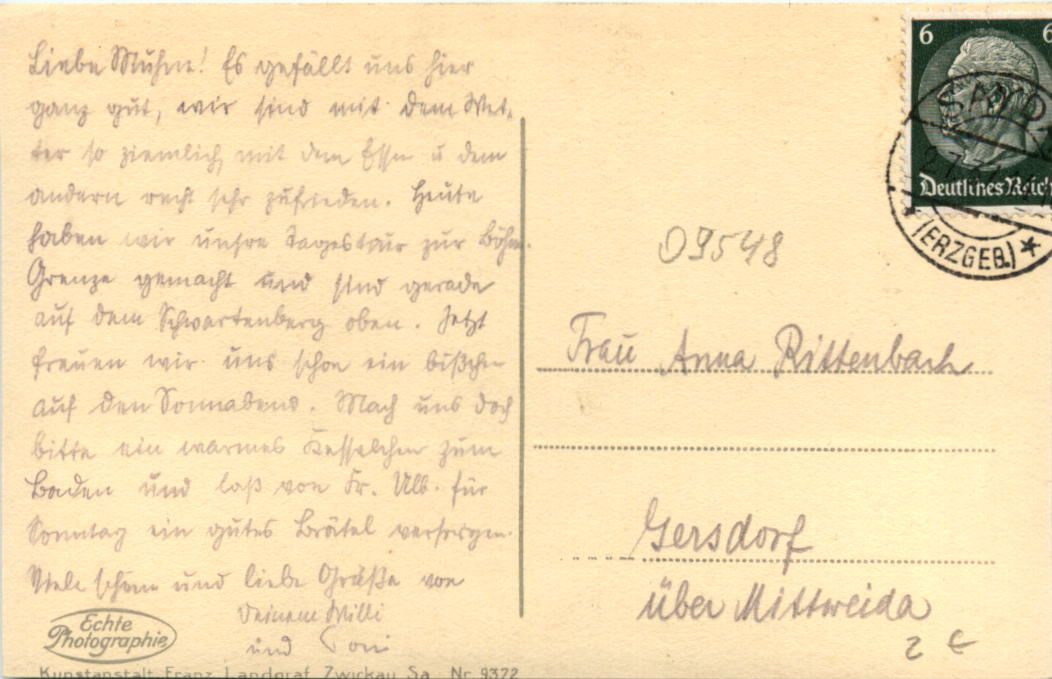 Liebe Muhme! Es gefällt uns hier
ganz gut, wir sind mit dem Wet-
ter so ziemlich, mit dem Essen u dem
andern recht sehr zufrieden. Heute
haben wir unsre Tagestour zur Böhm.
Grenze gemacht und sind gerade
auf dem Schwartenberg oben. Jetzt
freuen wir uns schon ein bißchen
auf den Sonnabend. Mach uns doch
bitte ein warmes Kesselchen zum
Baden und laß von Fr. Ulb. für
Sonntag ein gutes Brätel versorgen.
Viele schöne und liebe Grüße von
Deinem Willi
und Toni
Echte
Photographie
Kunstanstalt Franz Landgraf Zwickau Sa. Nr 9372
6 6
Deutsches Reich
(ERZGEB.)
09548
Frau Anna Rittenbach
Gersdorf
über Mittweida
2 €